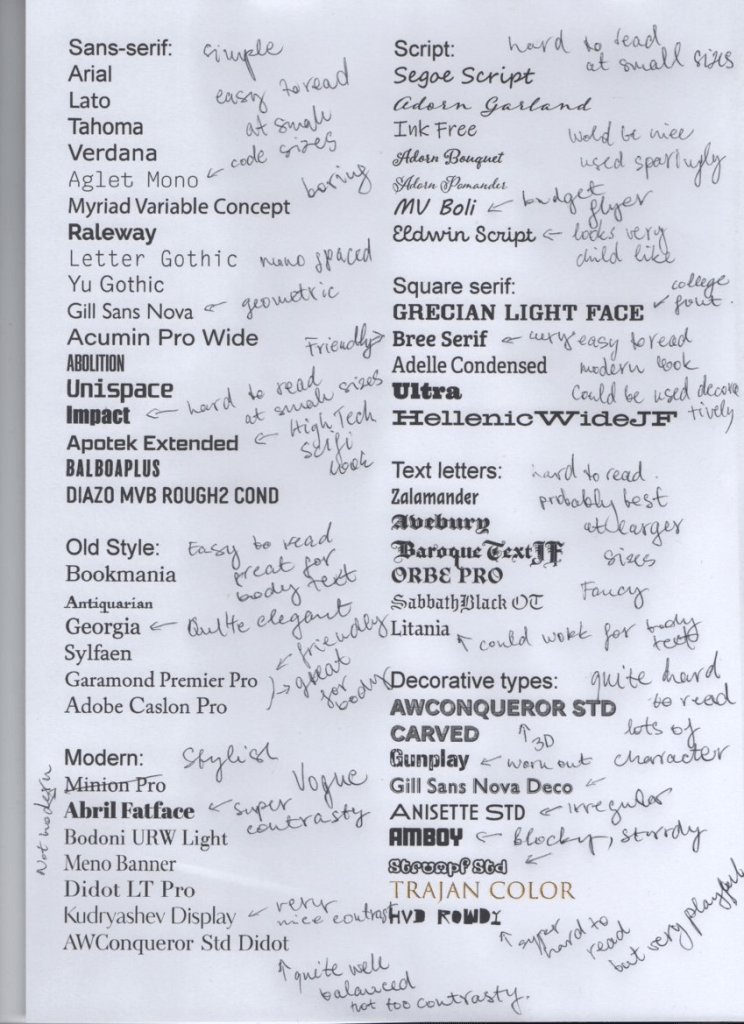 Sans-serif: simple
Arial
Lato easy to read
Tahoma at small
Verdana ← code sizes
Aglet Mono boring
Myriad Variable Concept
Raleway
Letter Gothic mono spaced
Yu Gothic
Gill Sans Nova ← geometric
Acumin Pro Wide
ABOLITION
Unispace
Impact ← hard to read
at small sizes
Apotek Extended ← High Tech
BALBOAPLUS Scifi
look
DIAZO MVB ROUGH2 COND
Old Style: Easy to read
Bookmania great for
body text
Antiquarian
Georgia ← Quitte elegant
Sylfaen ← friendly
Garamond Premier Pro → great
Adobe Caslon Pro for body
Modern: Stylish
Not modern
Minion Pro Vogue
Abril Fatface ← super
contrasty
Bodoni URW Light
Meno Banner
Didot LT Pro
Kudryashev Display ← very
nice contrast
AWConqueror Std Didot
↑ quite well
balanced
not too contrasty.
Script: hard to read
at small sizes
Segoe Script
Adorn Garland
Ink Free would be nice
Adorn Bouquet used sparingly
Adorn Pomander
MV Boli ← budget
flyer
Eldwin Script ← looks very
child like
Square serif: college
GRECIAN LIGHT FACE font.
Friendly → Bree Serif ← very easy to read
Adelle Condensed modern look
Ultra Could be used decora
HellenicWideJF tively
Text letters: hard to read.
Zalamander probably best
Avebury at larger
BaroqueTextJF sizes
ORBE PRO
SabbathBlack OT Fancy
Litania ↑ could work for body
text
Decorative types: quite hard
AWCONQUEROR STD to read
CARVED ↑ 3D lots of
Gunplay ← worn out character
Gill Sans Nova Deco ←
ANISETTE STD ← irregular
AMBOY ← blocky, sturdy
Strumpf Std ←
TRAJAN COLOR
HVD ROWDY
↑ super
hard to
read
but very playful